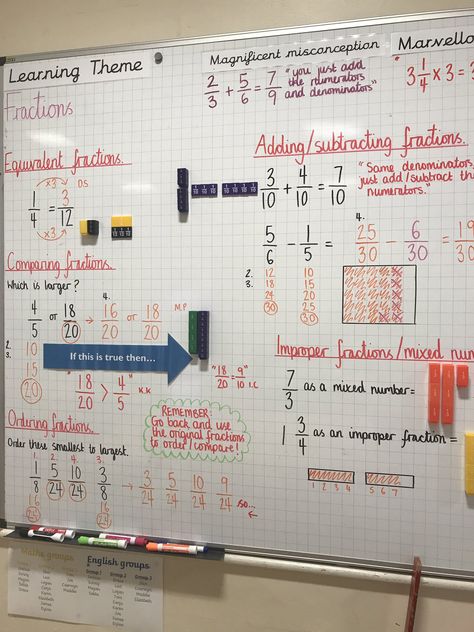 Learning Theme
Fractions
Magnificent misconception
2/3 + 5/6 = 7/9
"you just add the numerators and denominators"
Marvello
3 1/4 × 3 =
Equivalent fractions.
×3
D.S
1/4 = 3/12
×3
Adding/subtracting fractions.
3/10 + 4/10 = 7/10
"Same denominators, just add/subtract the numerators."
5/6 - 1/5 =
4.
25/30 - 6/30 = 19/30
2. 12 10
3. 18 15
24 20
30 25
30
Comparing fractions.
Which is larger?
4.
4/5 or 18/20 → 16/20 or 18/20
M.P
2. 10
3. 15
20
If this is true then...
"18/20 > 4/5" K.K
"18/20 = 9/10" I.C
Improper fractions/mixed num
7/3 as a mixed number=
1 3/4 as an improper fraction=
1 2 3 4
5 6 7
REMEMBER:
Go back and use
the original fractions
to order/compare!
Ordering fractions.
Order these smallest to largest.
1. 2. 2. 3.
1/8 5/24 10/24 3/8
→ 3/24 5/24 10/24 9/24
so...
16 16
24 24
Maths groups
English groups
Group 1
Group 2
Group 3